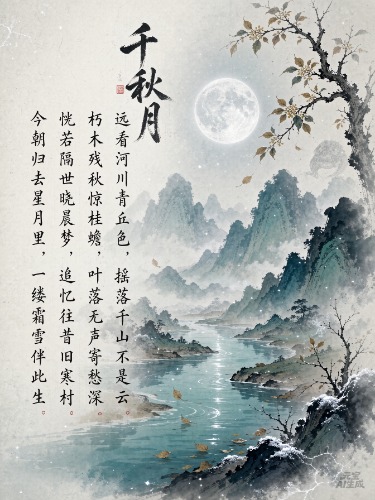 千秋月
远看河川青丘色，摇落千山不是云。
朽木残秋惊桂蟾，叶落无声寄愁深。
恍若隔世晓晨梦，追忆往昔旧寒村。
今朝归去星月里，一缕霜雪伴此生。
元宝
AI生成